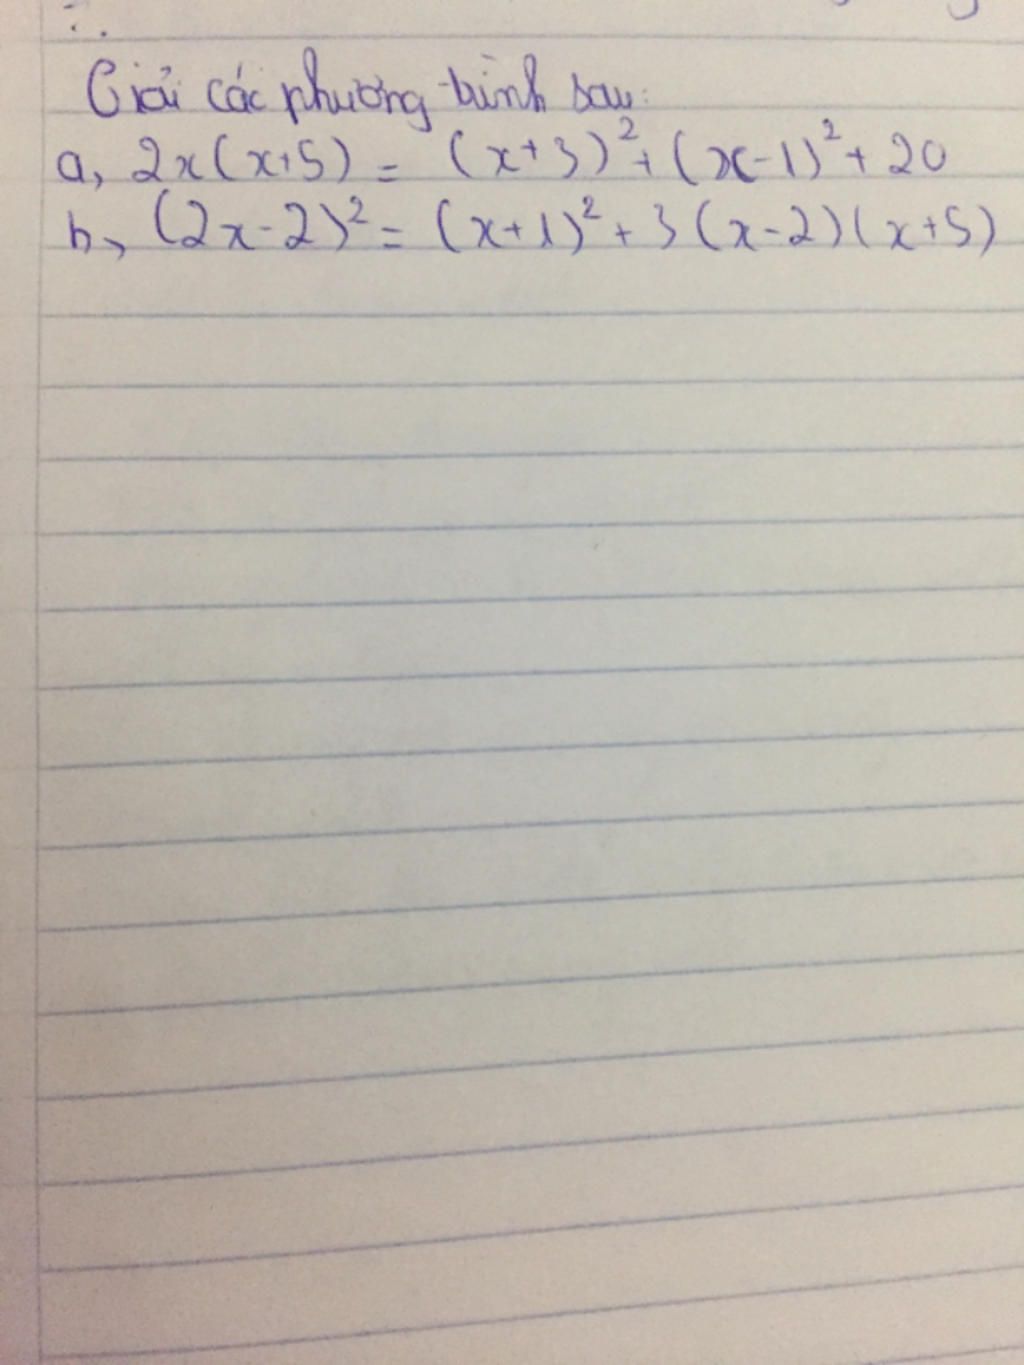 Giải các phương trình sau:
a, 2x(x+5) = (x+3)² + (x-1)² + 20
b, (2x-2)² = (x+1)² + 3(x-2)(x+5)